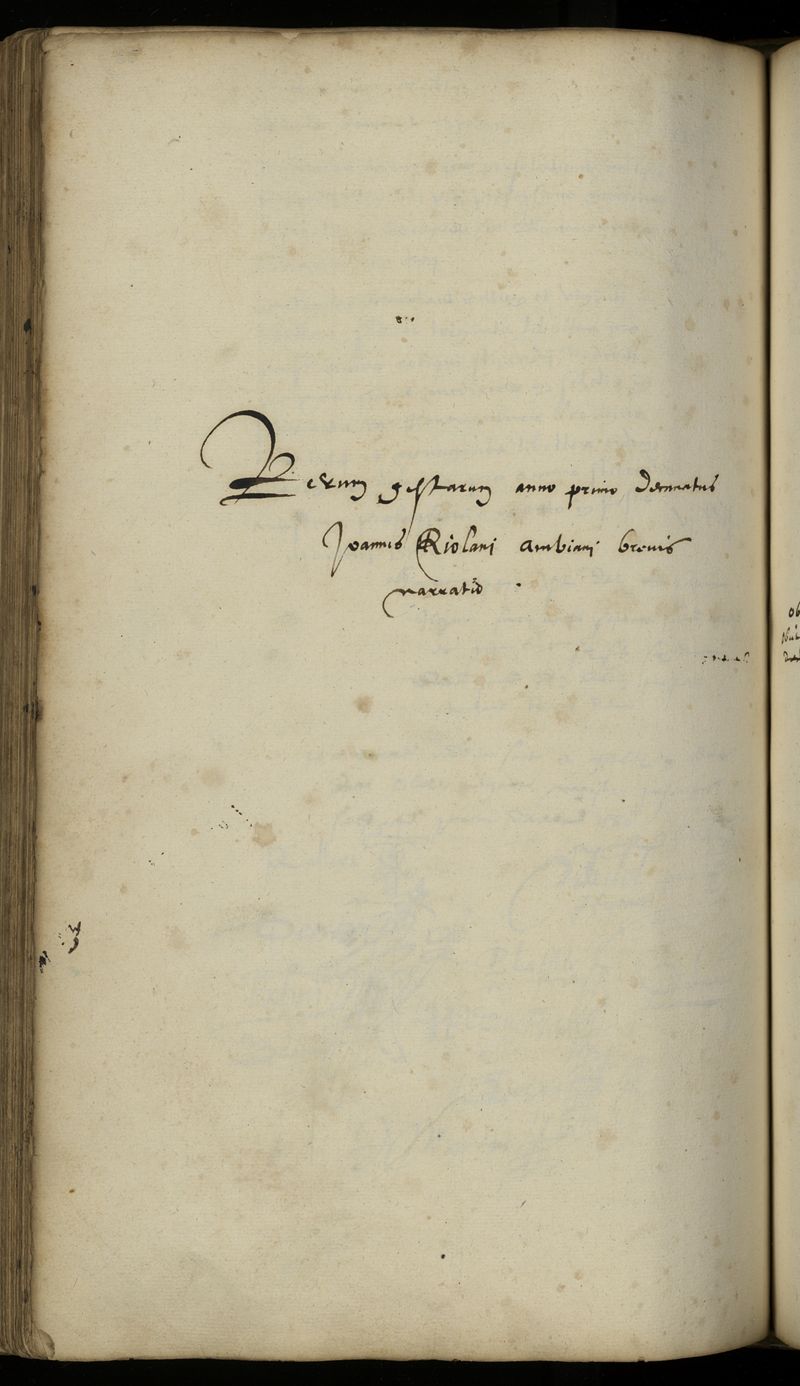 Rerum gestarum anno primo Decanatus
Joannis Riolani Ambiani brevis
narratio